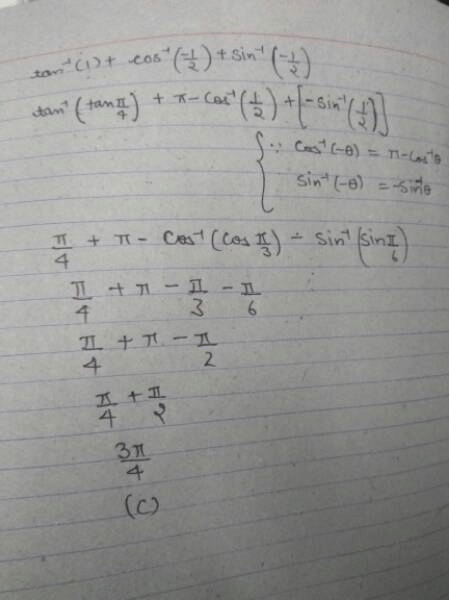 tan⁻¹(1) + cos⁻¹(-1/2) + sin⁻¹(-1/2)
tan⁻¹(tan π/4) + π - cos⁻¹(1/2) + [-sin⁻¹(1/2)]
{∵ cos⁻¹(-θ) = π - cos⁻¹θ
sin⁻¹(-θ) = -sin⁻¹θ
π/4 + π - cos⁻¹(cos π/3) - sin⁻¹(sin π/6)
π/4 + π - π/3 - π/6
π/4 + π - π/2
π/4 + π/2
3π/4
(C)